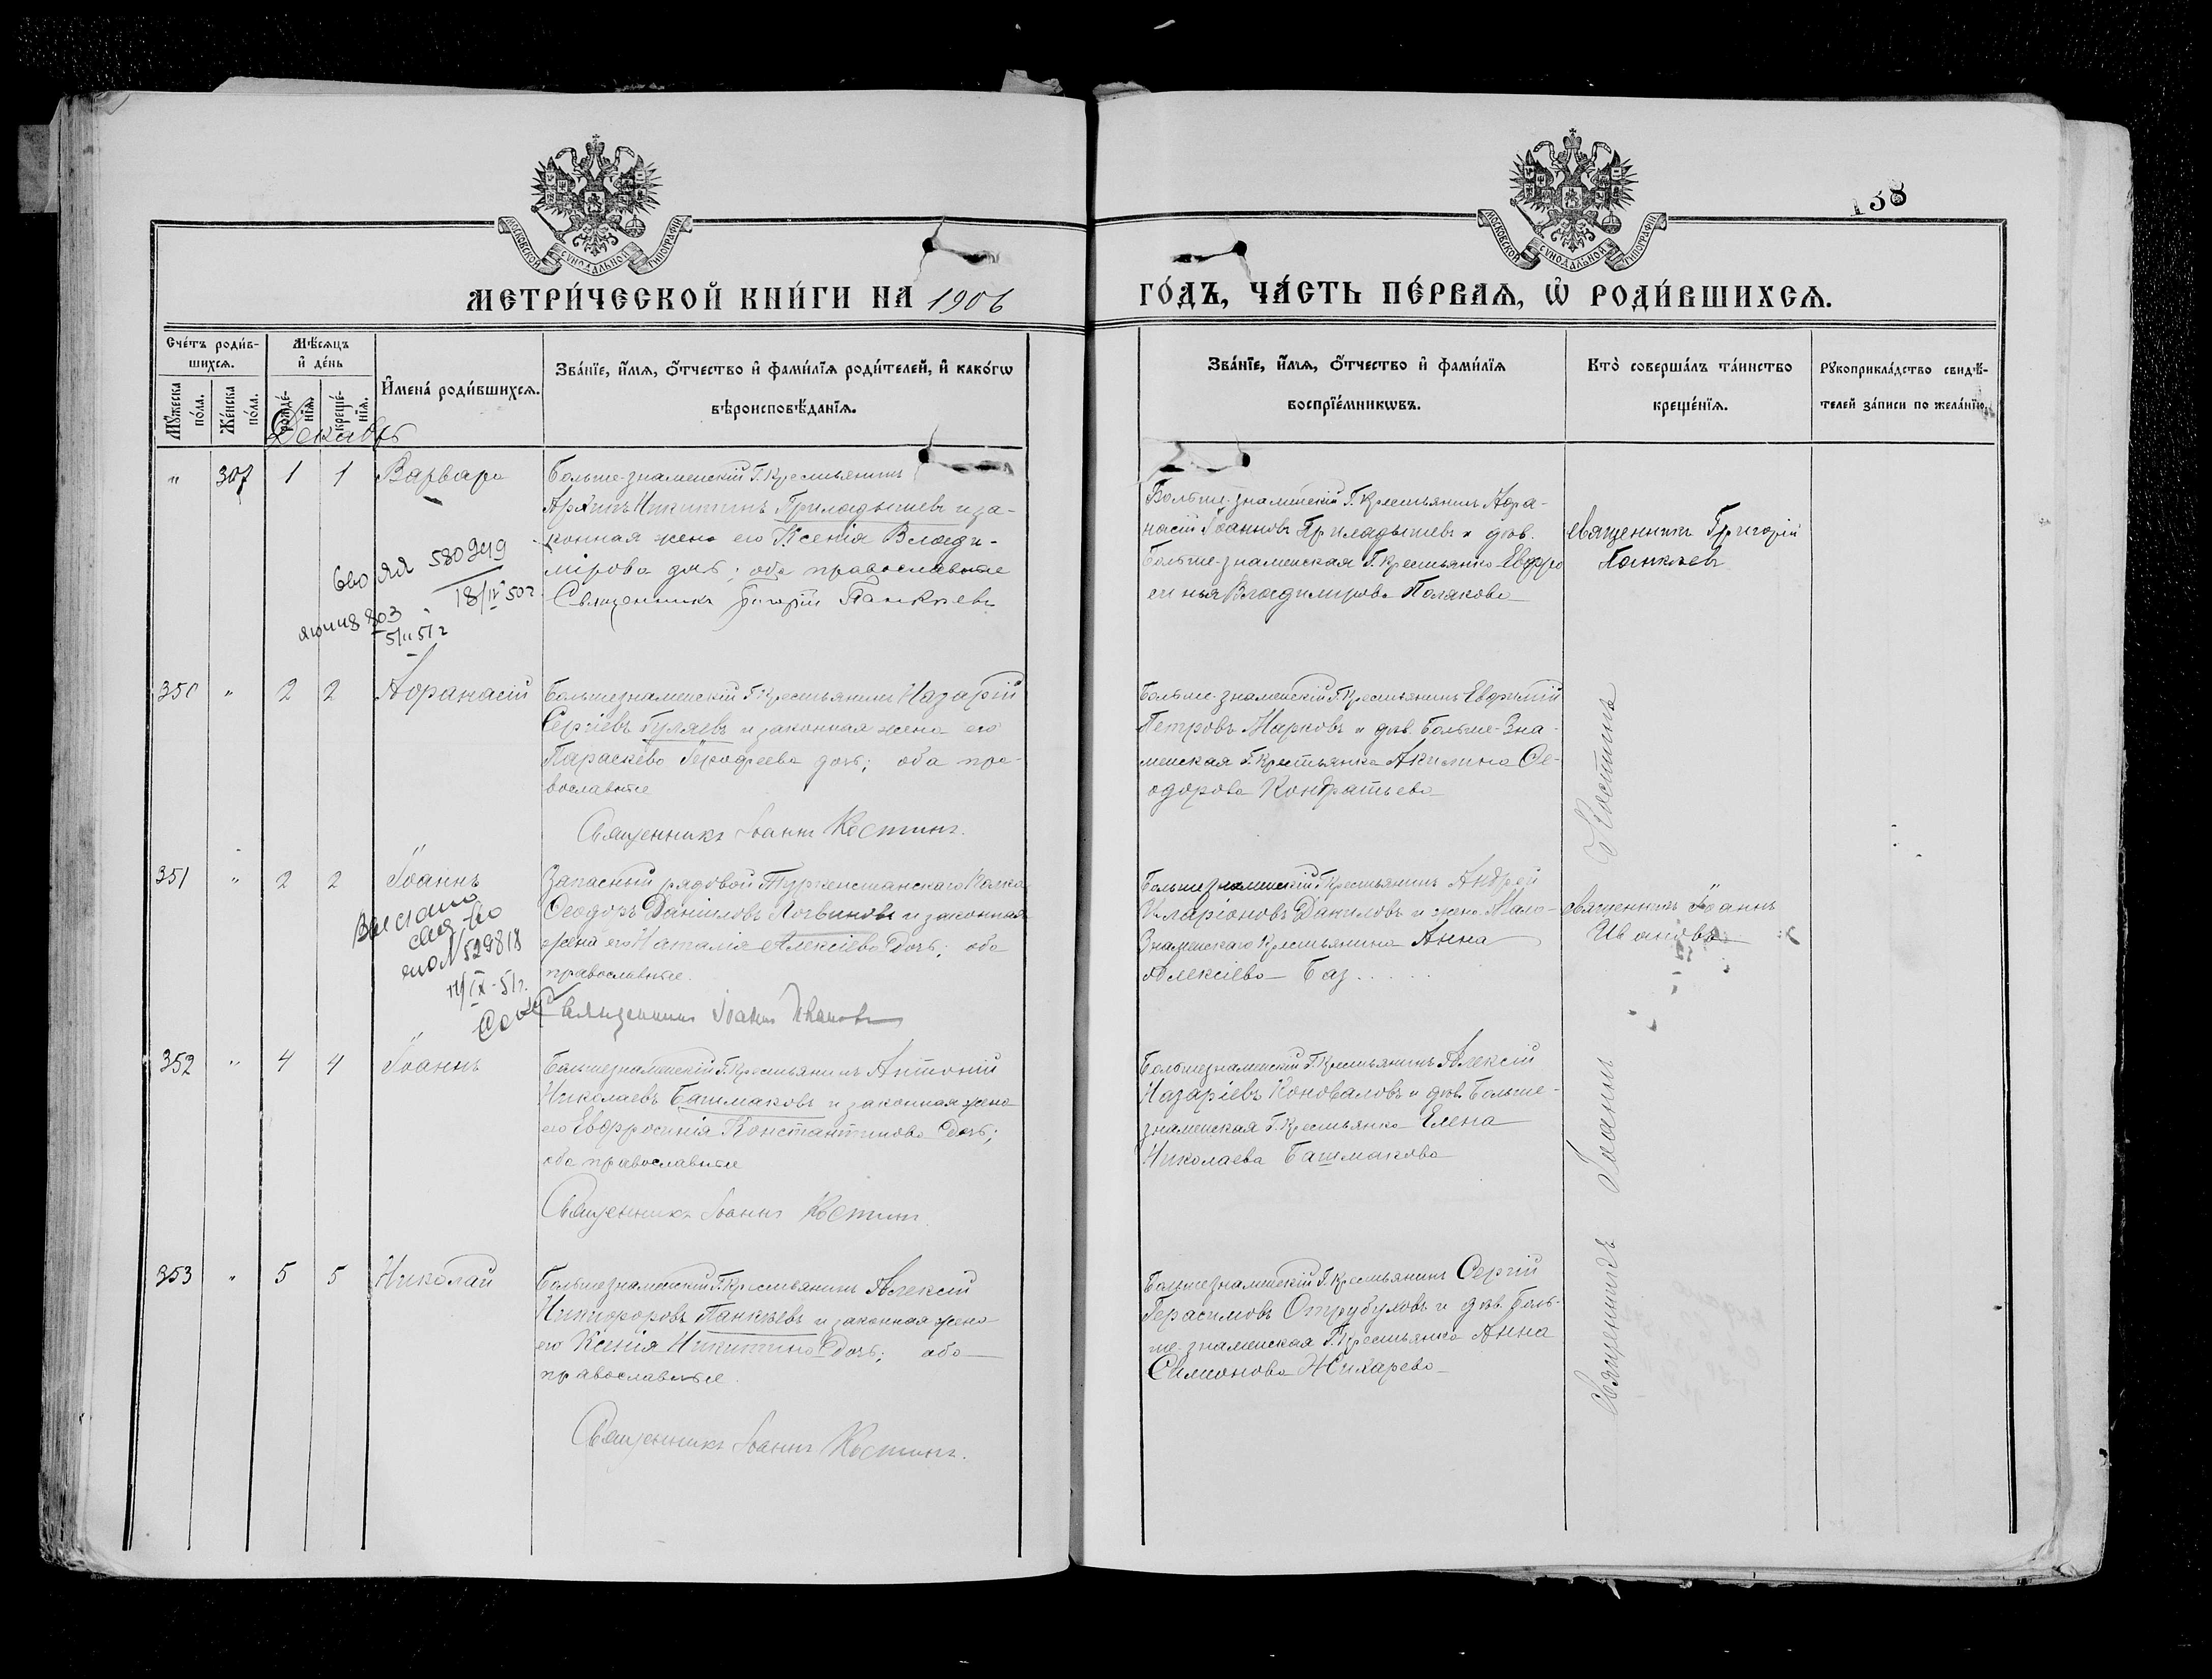 138
МОСКОВСКОЙ СѴНОДАЛЬНОЙ ТИПОГРАФІИ
МОСКОВСКОЙ СѴНОДАЛЬНОЙ ТИПОГРАФІИ
МЕТРИ́ЧЕСКОЙ КНИ́ГИ НА 1906
ГО́ДЪ, ЧА́СТЬ ПЕ́РВАѦ, Ѡ҆ РОДИ́ВШИХСѦ.
Сче́тъ роди́в-
шихсѧ.
Мꙋ́жеска по́ла.
Же́нска по́ла.
Мѣ́сѧцъ
и҆ де́нь
рожде́-нїѧ.
креще́-нїѧ.
И҆мена̀ роди́вшихсѧ.
Зва́нїе, и҆́мѧ, ѻ҆́тчество и҆ фами́лїѧ роди́телей, и҆ како́гѡ
вѣроисповѣ́данїѧ.
Зва́нїе, и҆́мѧ, ѻ҆́тчество и҆ фами́лїѧ
воспрїе́мникѡвъ.
Кто̀ соверша́лъ та́инство
креще́нїѧ.
Рꙋкоприкла́дство свидѣ́-
телей за́писи по жела́нїю.
Декабрь
" 307 1 1 Варвара
Больше-знаменскій Г. Крестьянинъ
Архипъ Никитинъ Приладышевъ и за-
конная жена его Ксенія Влади-
мірова дочь; оба православные
Священникъ Григорій Панкѣевъ
580949
18/IV 50г
803
5/II 51г
Больше-знаменскій Г. Крестьянинъ Аѳа-
насій Іоанновъ Приладышевъ и дѣв.
Больше-знаменская Г. Крестьянка Евфро
синья Владимирова Полякова
священникъ Григорій
Панкѣевъ
350 " 2 2 Аѳанасій
Большезнаменскій Г. Крестьянинъ Назарій
Сергіевъ Гуляевъ и законная жена его
Параскева Тимофеева дочь; оба пра-
вославные
Священникъ Іоаннъ Костинъ.
Больше-знаменскій Г. Крестьянинъ Евфимій
Петровъ Марковъ и дѣв. Больше-Зна-
менская Г. Крестьянка Акилина Ѳе-
одорова Кондратьева
351 " 2 2 Іоаннъ
Запасный рядовой Туркенстанскаго Полка
Ѳеодоръ Даніиловъ Логвиновъ и законная
жена его Наталія Алексіева дочь; оба
православные.
Священникъ Іоаннъ Ивановъ
Выслано
N 529818
14/IX-51г.
Большезнаменскій Г. Крестьянинъ Андрей
Иларіоновъ Даниловъ и жена Мало-
Знаменскаго Крестьянина Анна
Алексіева Баз.....
Священникъ Іоаннъ
Ивановъ
352 " 4 4 Іоаннъ
Большезнаменскій Г. Крестьянинъ Антоній
Николаевъ Башмаковъ и законная жена
его Евфросинія Константинова дочь;
оба православные
Священникъ Іоаннъ Костинъ
Большезнаменскій Г. Крестьянинъ Алексій
Назаріевъ Коноваловъ и дѣв. Больше-
знаменская Г. Крестьянка Елена
Николаева Башмакова
353 " 5 5 Николай
Большезнаменскій Г. Крестьянинъ Алексій
Никифоровъ Панкѣевъ и законная жена
его Ксенія Никитина дочь; оба
православные.
Священникъ Іоаннъ Костинъ.
Большезнаменскій Г. Крестьянинъ Сергій
Герасимовъ Отрубуховъ и дѣв. Боль-
ше-знаменская Г. Крестьянка Анна
Симеонова Жихарева
Священникъ Іоаннъ Костинъ